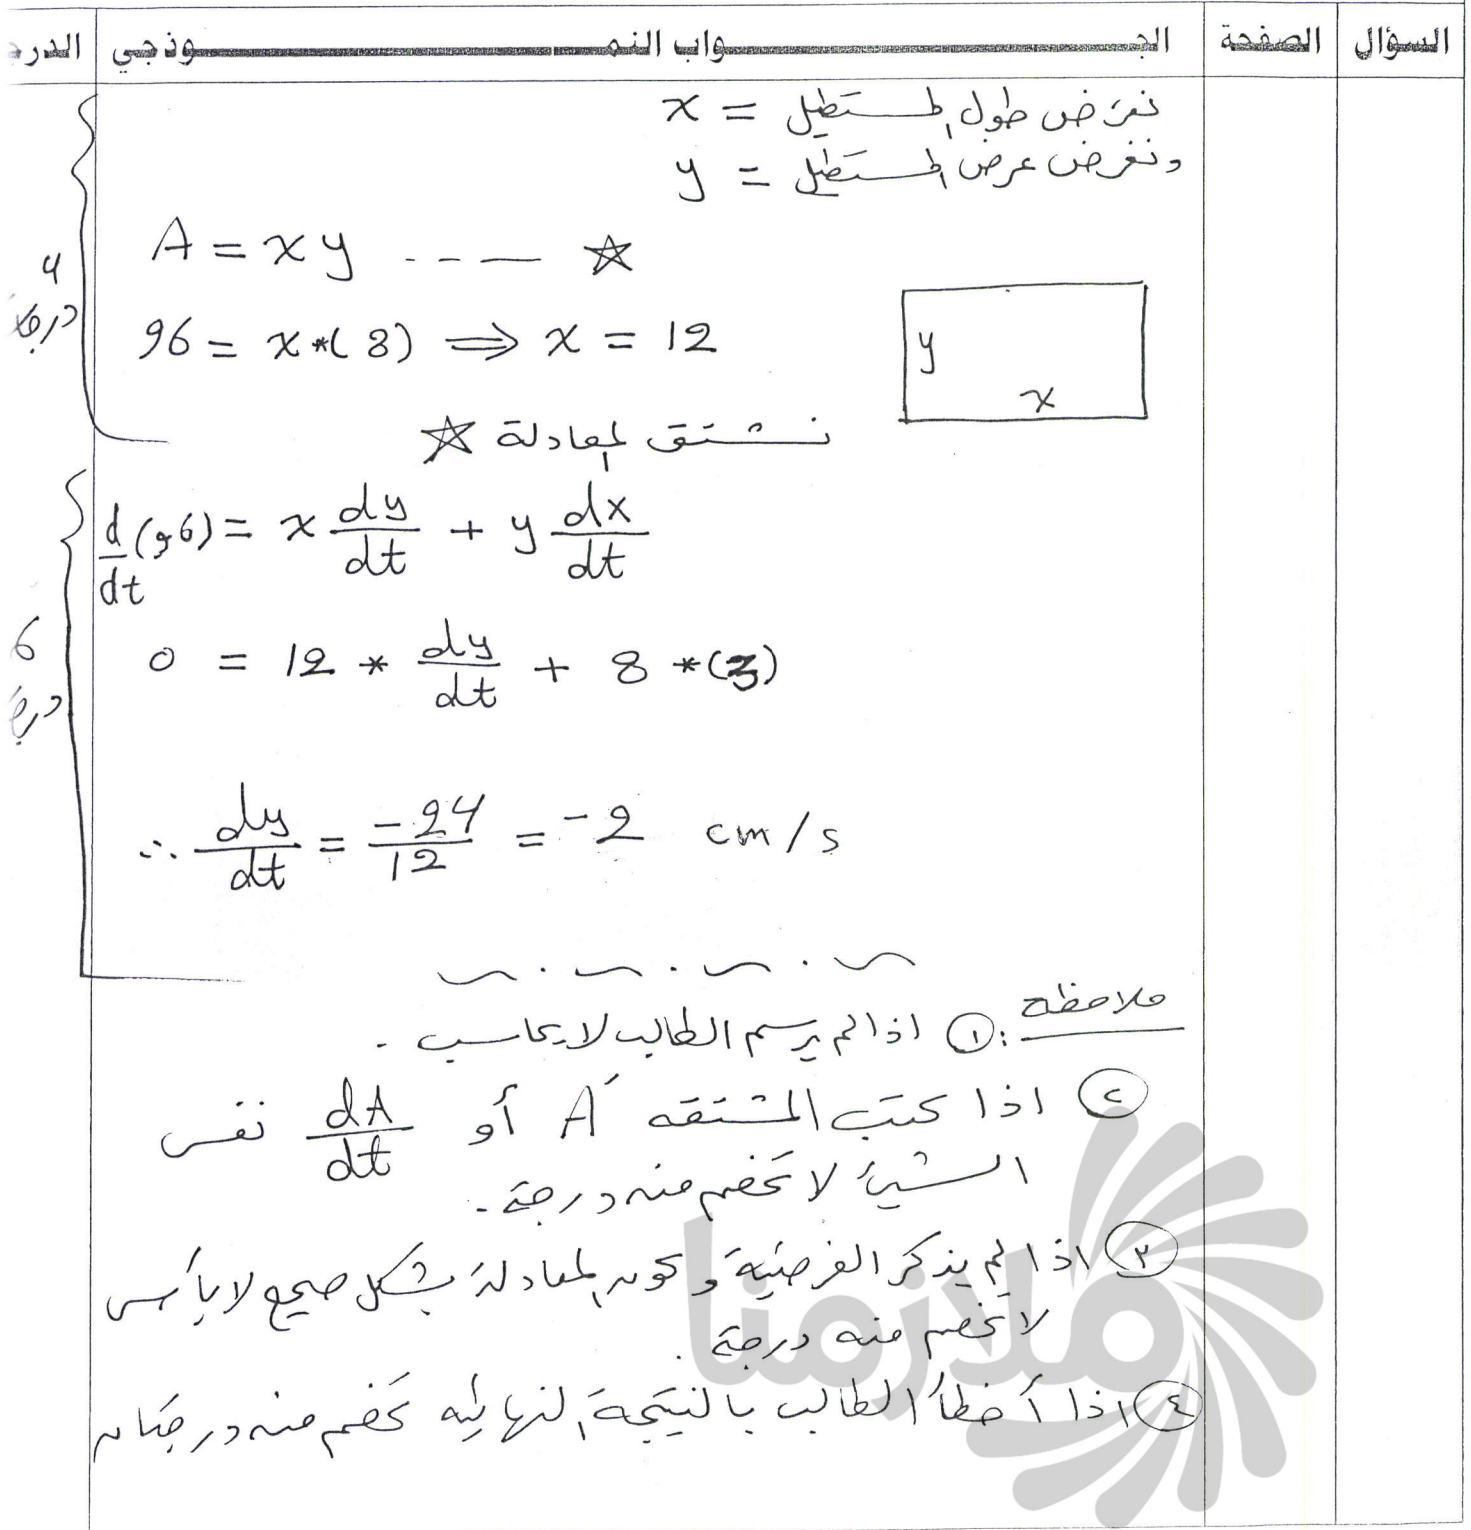 السؤال الصفحة الجـــواب النمـــوذجي الدرجـ
نفرض طول المستطيل = x
ونفرض عرض المستطيل = y
A = x y ---- ☆
4 درجات
96 = x*(8) ⟹ x = 12
y
x
نشتق المعادلة ☆
d/dt (96) = x dy/dt + y dx/dt
0 = 12 * dy/dt + 8 *(3)
6 درجات
∴ dy/dt = -24/12 = -2 cm/s
ملاحظة: ① اذا لم يرسم الطالب لا يحاسب .
② اذا كتب المشتقه A′ أو dA/dt نفس
الشيئ لا تخصم منه درجة .
③ اذا لم يذكر الفرضية وكون المعادلة بشكل صحيح لا بأس
لا تخصم منه درجة .
④ اذا أخطأ الطالب بالنتيجة النهائيه تخصم منه درجتان
ملازمنا